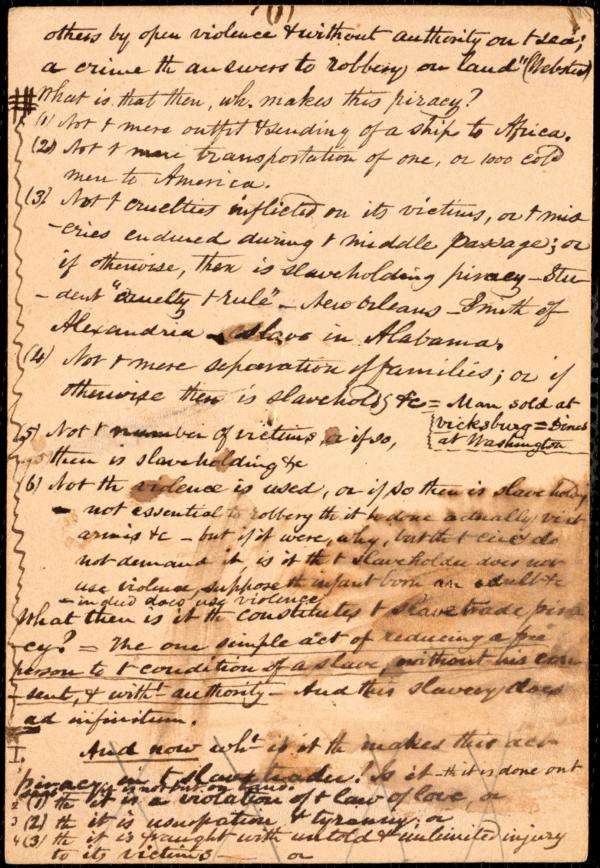 (1)
others by open violence & without authority on t sea;
a crime th answers to robbery on land" (Webster)
What is that then, wh. makes this piracy?
(1) Not t mere outfit & sending of a ship to Africa.
(2) Not t mere transportation of one, or 1000 cold
men to America.
(3) Not t cruelties inflicted on its victims, or t mis
-eries endured during t middle passage; or
if otherwise, then is slaveholding piracy - Stu-
-dent "cruelty t rule" - New Orleans - Smith of
Alexandria - slave in Alabama.
(4) Not t mere separation of families; or if
otherwise then is slavehold'g &c = Man sold at
Vicksburg =
at Washington
(5) Not t number of victims, or if so,
then is slaveholding &c
(6) Not th violence is used, or if so then is slaveholding
- not essential to robbery th it be done actually
arms &c - but if it were, why, but th do
not demand it, is it th t slaveholder does not
use violence, suppose the infant born an adult &c
- indeed does use violence
What then is it th constitutes t slave trade pira
cy? = The one simple act of reducing a free
person to t condition of a slave, without his con
-sent, & witht authority - And this slavery does
ad infinitum.
I. And now wht is it th makes this act
piracy in t slave trader? Is it - th it is done on t
sea, & not on land.
2 (1) th it is a violation of t law of love, or
3 (2) th it is usurpation & tyranny; or
4 (3) th it is fraught with untold & unlimited injury
to its victims - or